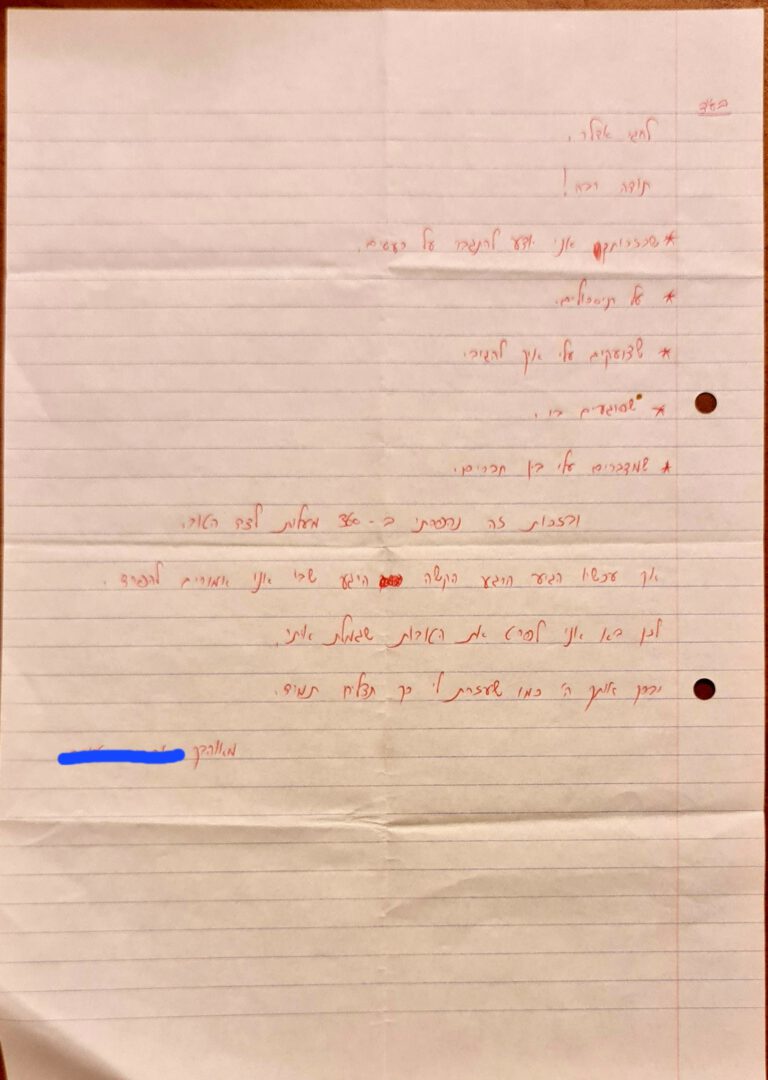 בס"ד
לחגי אדלר,
תודה רבה!
* שבזכותך אני יודע להתגבר על כעסים.
* על תיסכולים.
* שצועקים עלי איך להגיב.
* שפוגעים בי.
* שמדברים עלי בין חברים.
ובזכות זה נהפכתי ב-360 מעלות לצד הטוב.
אך עכשיו הגיע הרגע הקשה הרגע שבו אנו אמורים להפרד.
לכן בא אני לפרט את הטובות שגמלת אותי.
יברך אותך ה' כמו שעזרת לי כך תצליח תמיד.
מאוהבך